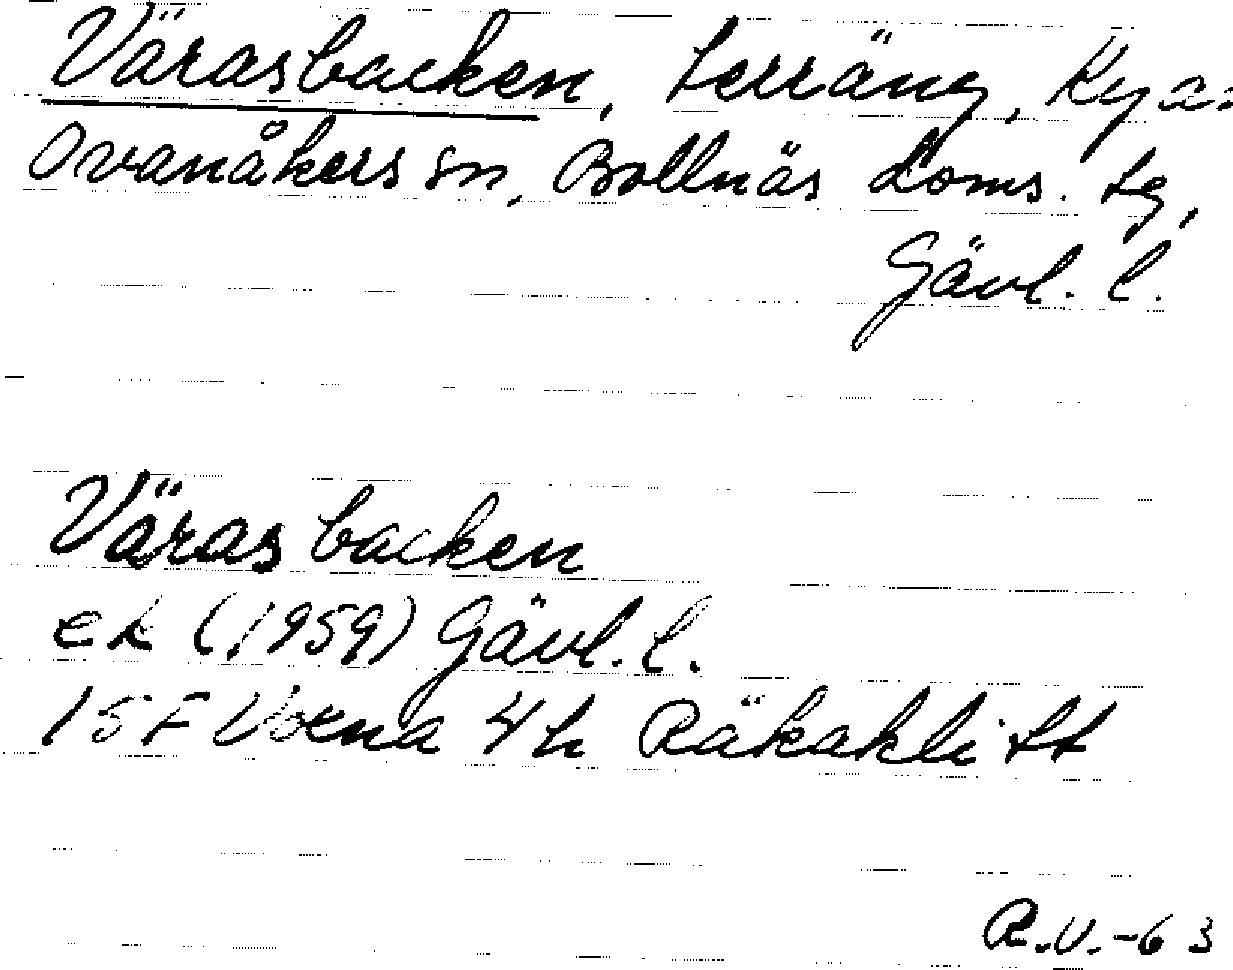 Väras backen, terräng, Rya:
Ovanåkers sn, Bollnäs doms. tg,
Gävl. l.
Väras backen
ek (1959) Gävl. l.
15F Voxna 4h Räkaklitt
R.V.-63